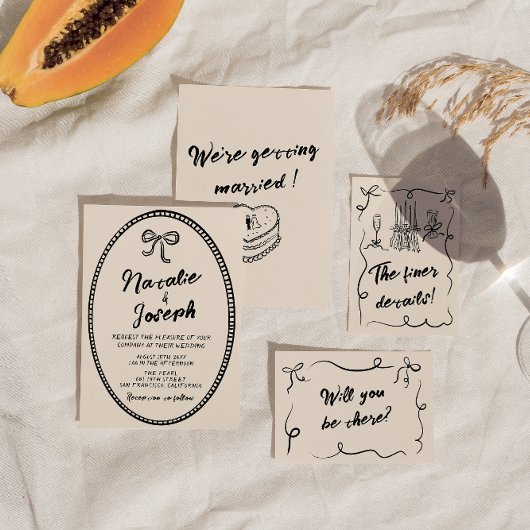 We're getting
married!
Natalie
&
Joseph
REQUEST THE PLEASURE OF YOUR
COMPANY AT THEIR WEDDING
AUGUST 15TH 20XX
2:00 IN THE AFTERNOON
THE PEARL
601 19TH STREET
SAN FRANCISCO, CALIFORNIA
Reception to follow
The finer
details!
Will you
be there?